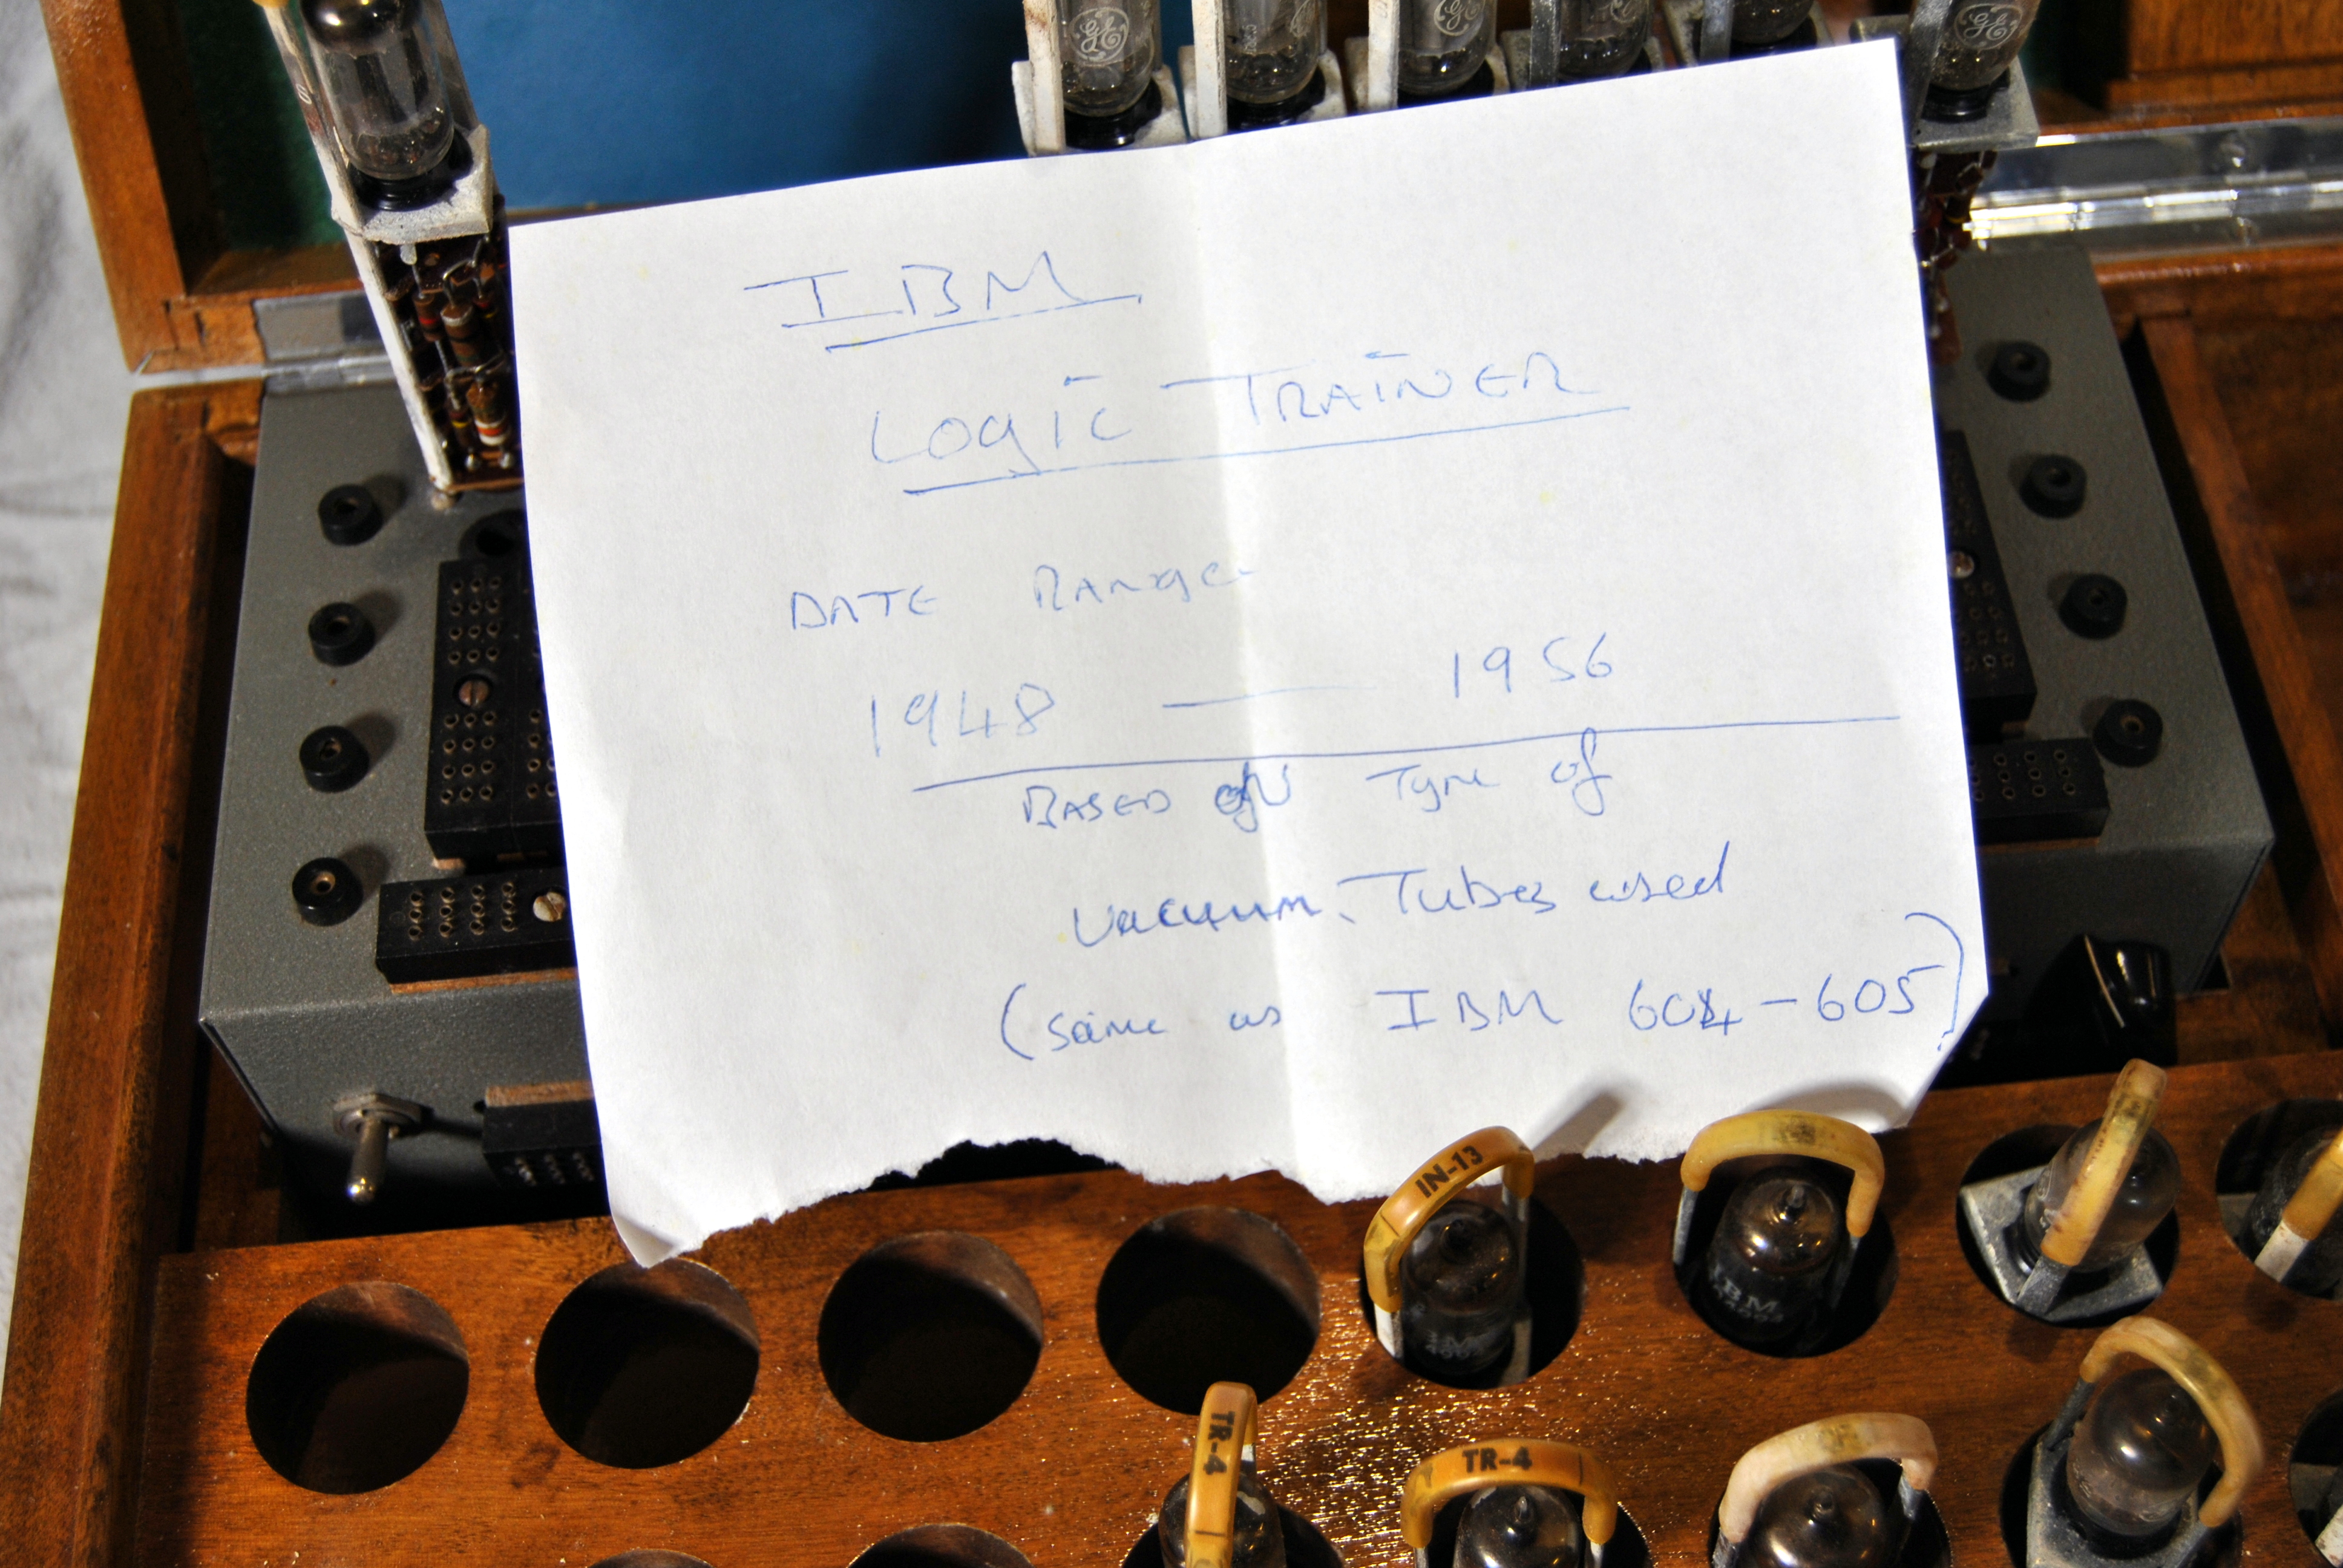 GE
GE
GE
IBM
LOGIC TRAINER
DATE RANGE
1948 — 1956
BASED ON Type of
Vacuum Tubes used
(same as IBM 604-605)
IN-13
IBM
TR-4
TR-4